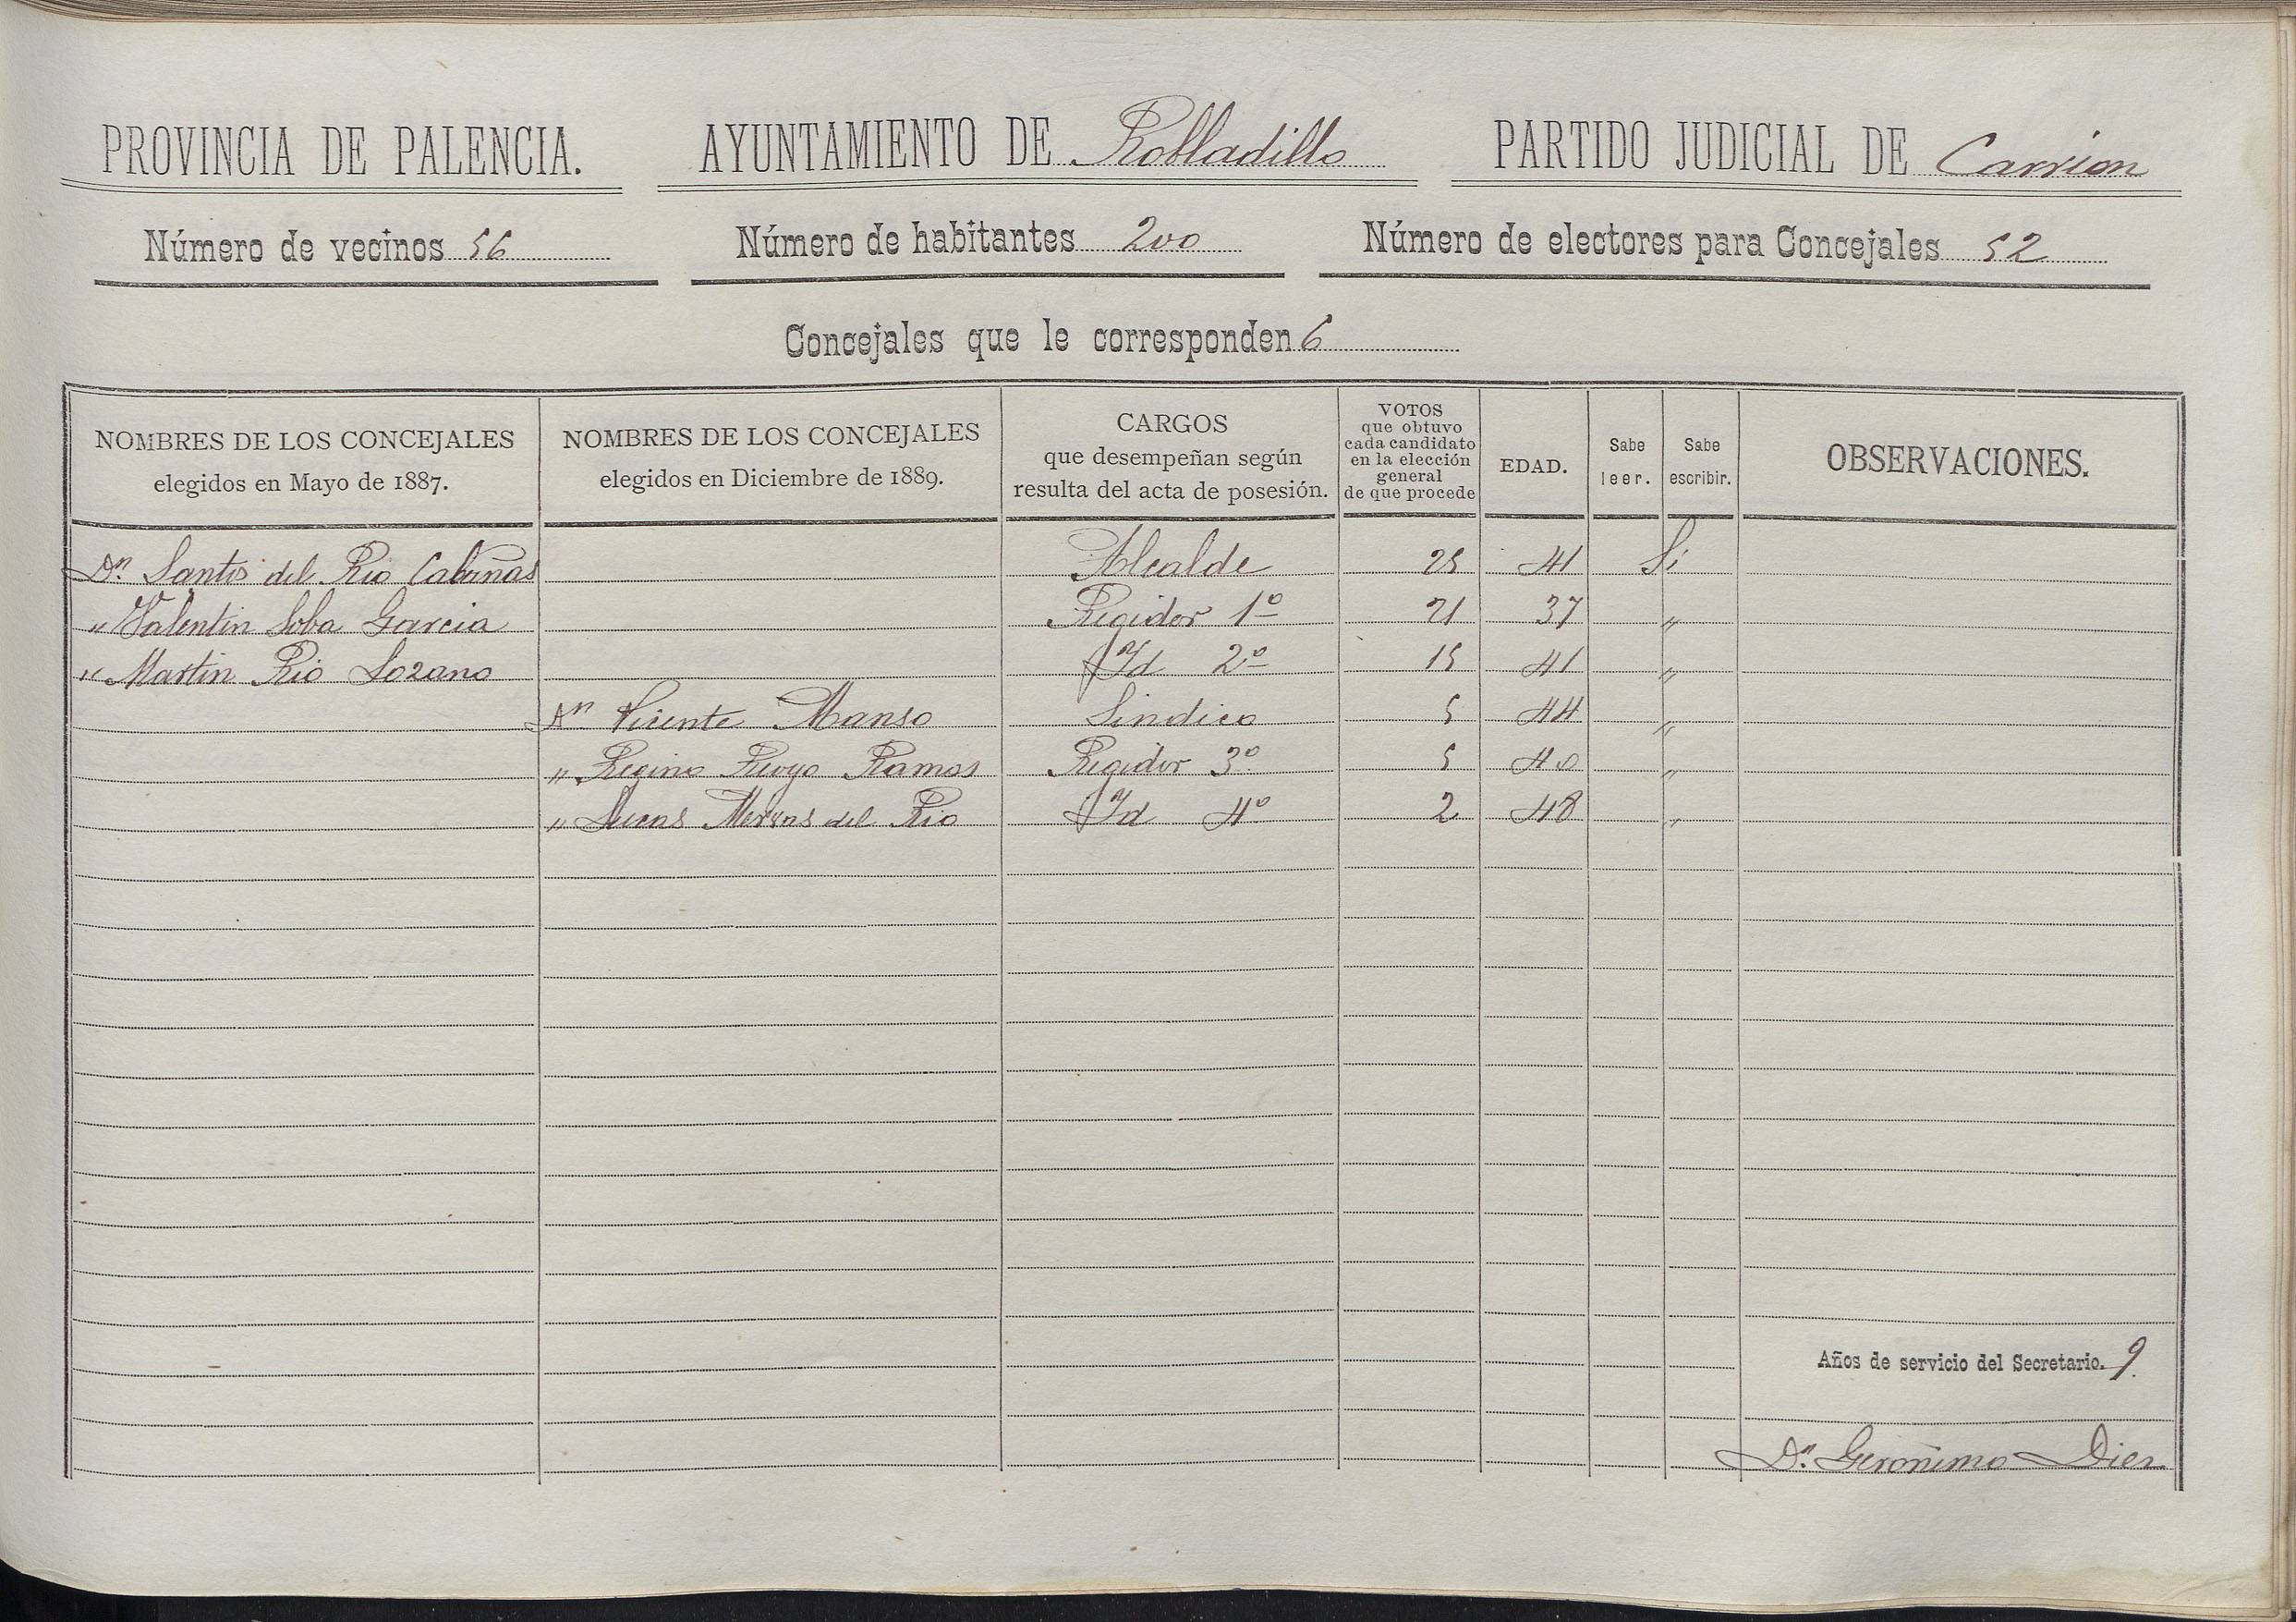 PROVINCIA DE PALENCIA. AYUNTAMIENTO DE Robladillo PARTIDO JUDICIAL DE Carrion
Número de vecinos 56 Número de habitantes 200 Número de electores para Concejales 52
Concejales que le corresponden 6
NOMBRES DE LOS CONCEJALES
elegidos en Mayo de 1887.
NOMBRES DE LOS CONCEJALES
elegidos en Diciembre de 1889.
CARGOS
que desempeñan según
resulta del acta de posesión.
VOTOS
que obtuvo
cada candidato
en la elección
general
de que procede
EDAD.
Sabe
leer.
Sabe
escribir.
OBSERVACIONES.
Dn. Santos del Rio Cabañas Alcalde 25 41 Si
" Valentin Soba Garcia Regidor 1º 21 37 "
" Martin Rio Lozano Id 2º 15 41 "
Dn Vicente Manso Sindico 5 44 "
" Regino Ramos Regidor 3º 5 40 "
" Lucas del Rio Id 4º 2 48 "
Años de servicio del Secretario. 9.
Dn. Geronimo Diez